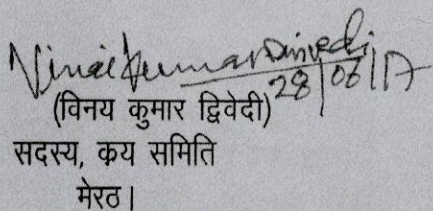 Vinai Kumar Dwivedi
28/06/17
(विनय कुमार द्विवेदी)
सदस्य, कय समिति
मेरठ।